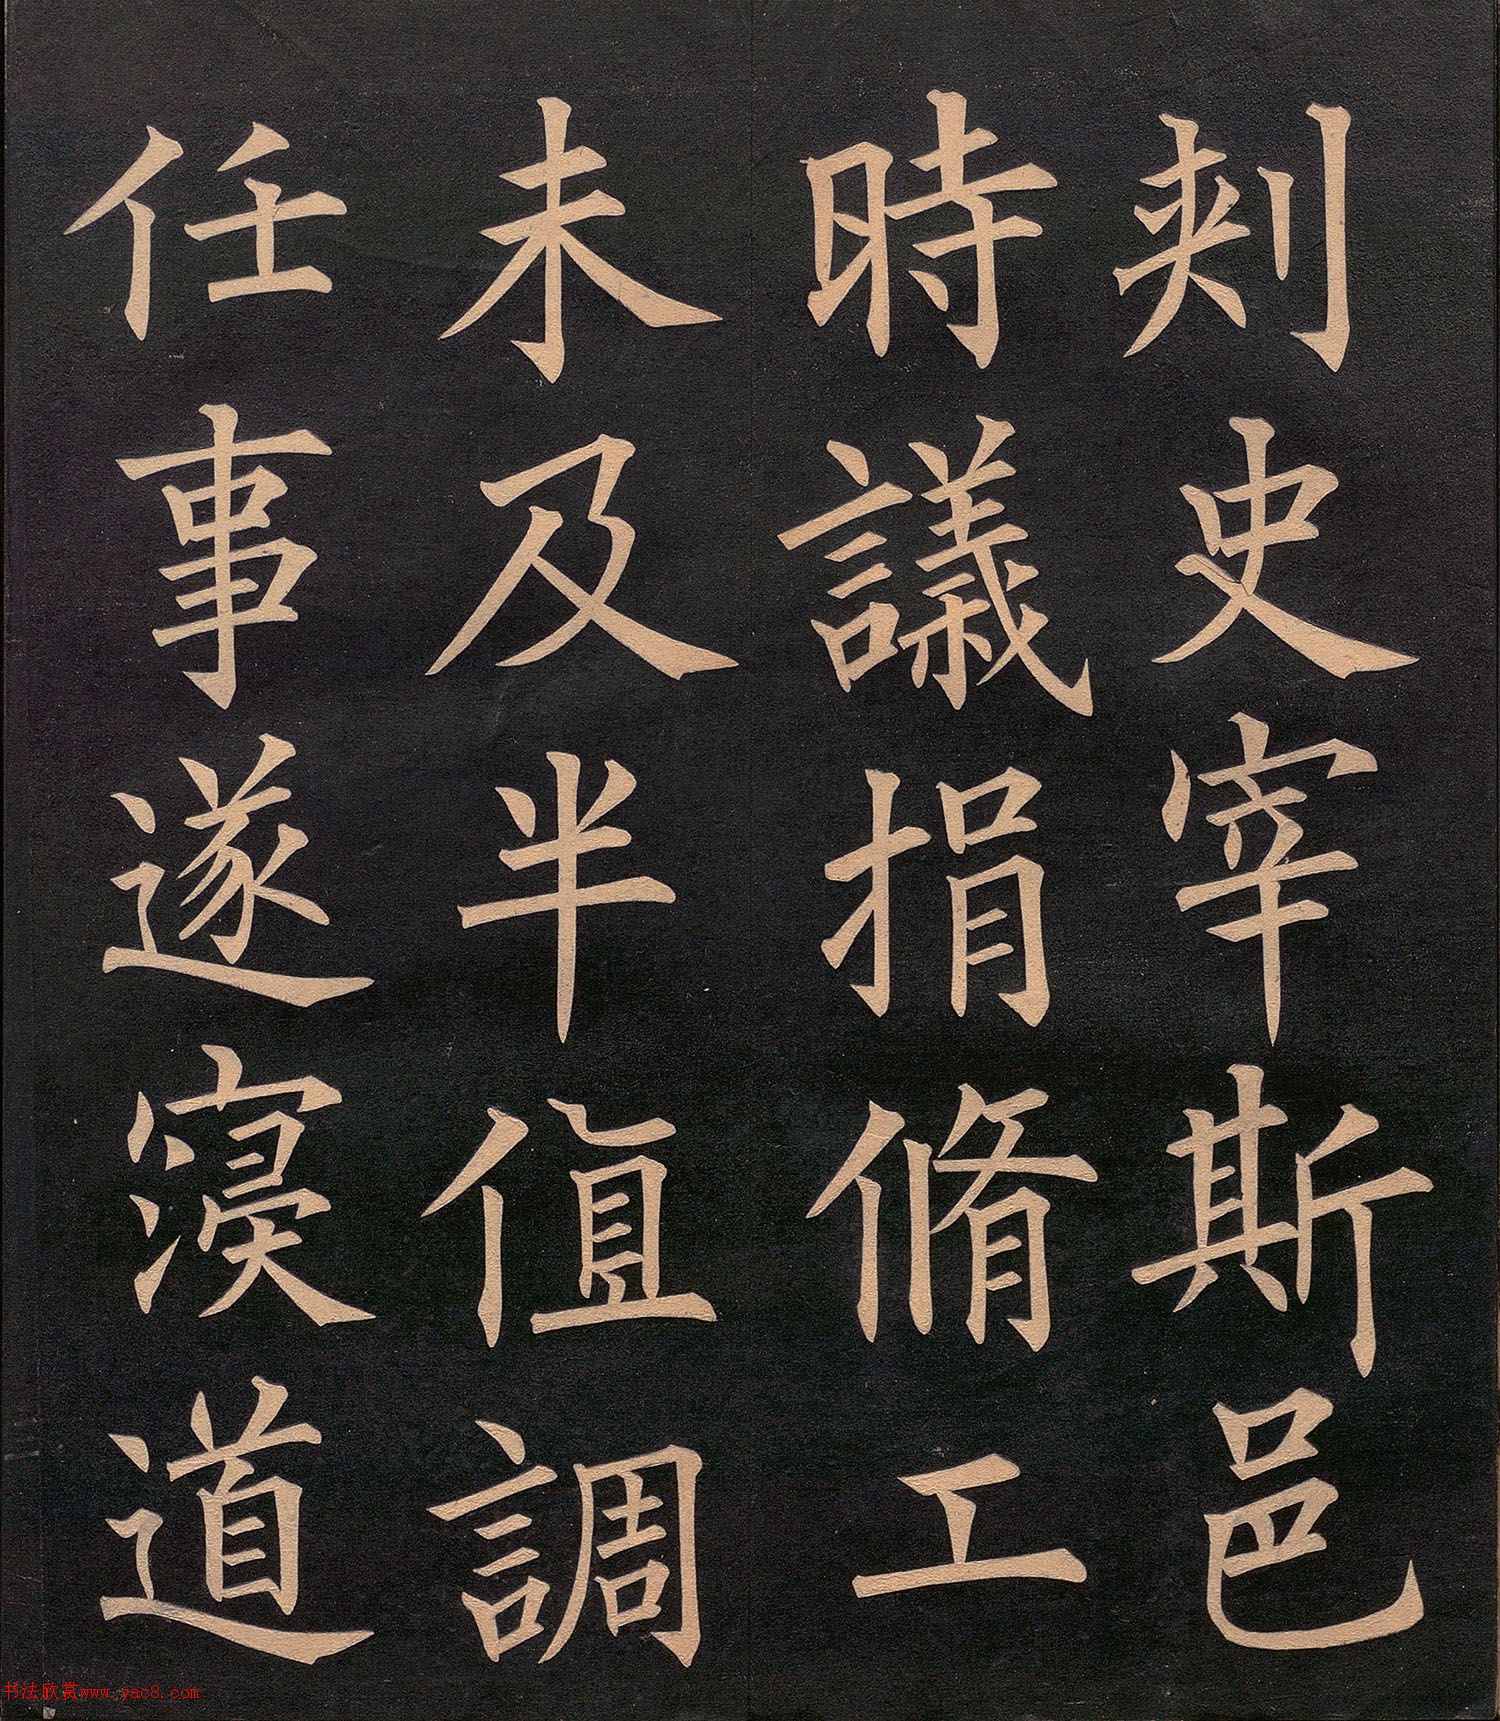 刾史宰斯邑
時議捐脩工
未及半值調
任事遂寑道
书法欣赏www.yac8.com